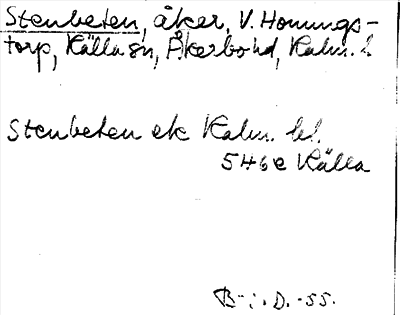 Stenbeten, åker, V. Hornings-
torp, Källa sn, Åkerbo hd, Kalm. l.
Stenbeten ek Kalm. bl.
546e Källa
B-i. D. -55.